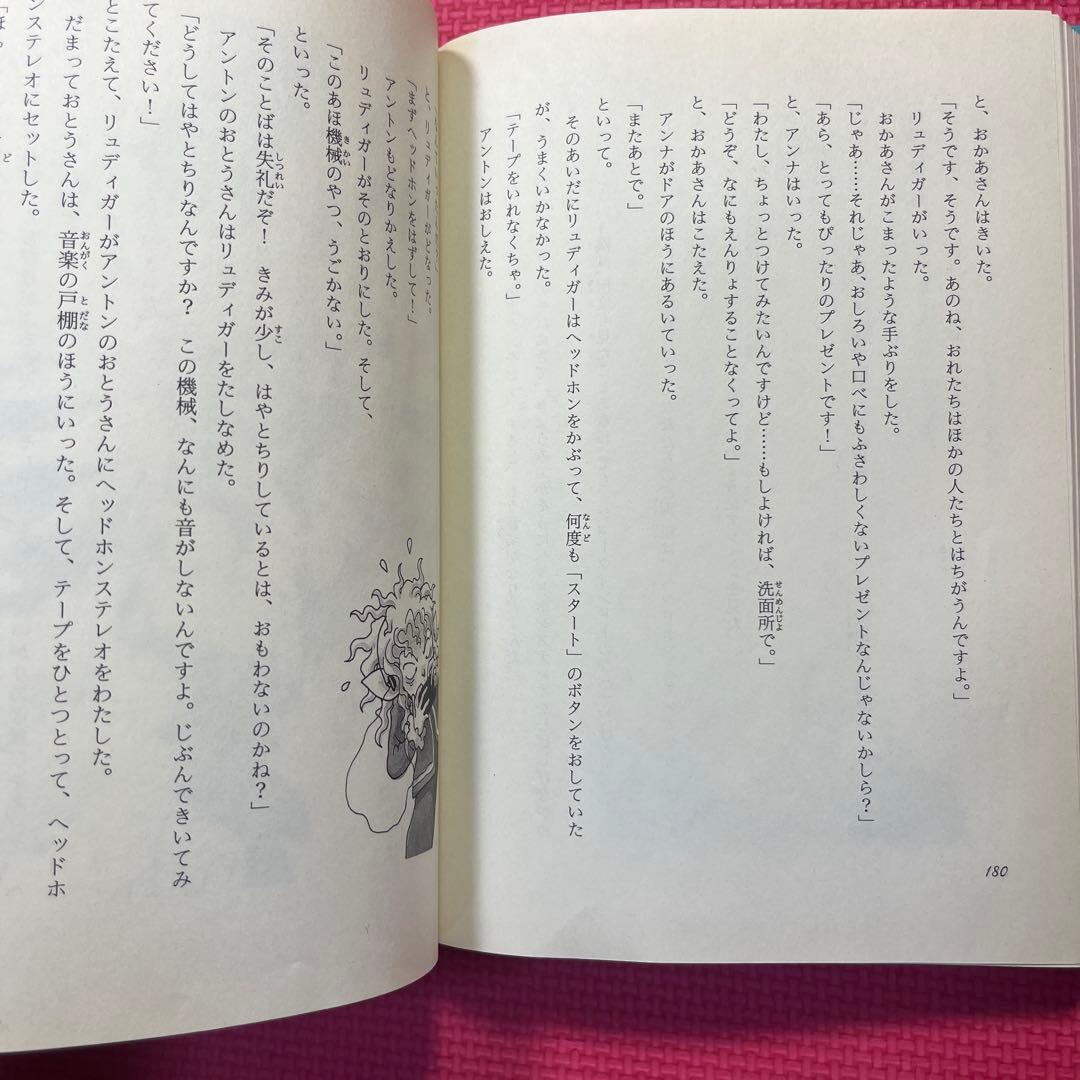 と、おかあさんはきいた。
「そうです、そうです。あのね、おれたちはほかの人たちとはちがうんですよ。」
リュディガーがいった。
おかあさんがこまったような手ぶりをした。
「じゃあ……それじゃあ、おしろいや口べにもふさわしくないプレゼントなんじゃないかしら？」
「あら、とってもぴったりのプレゼントです！」
と、アンナはいった。
「わたし、ちょっとつけてみたいんですけど……もしよければ、洗面所で。」
「どうぞ、なにもえんりょすることなくってよ。」
と、おかあさんはこたえた。
アンナがドアのほうにあるいていった。
「またあとで。」
といって。
そのあいだにリュディガーはヘッドホンをかぶって、何度も「スタート」のボタンをおしていた
が、うまくいかなかった。
「テープをいれなくちゃ。」
アントンはおしえた。
180
と、リュディガーがどなった。
「まずヘッドホンをはずして！」
アントンもどなりかえした。
リュディガーがそのとおりにした。そして、
「このあほ機械のやつ、うごかない。」
といった。
「そのことばは失礼だぞ！　きみが少し、はやとちりしているとは、おもわないのかね？」
アントンのおとうさんはリュディガーをたしなめた。
「どうしてはやとちりなんですか？　この機械、なんにも音がしないんですよ。じぶんできいてみ
てください！」
とこたえて、リュディガーがアントンのおとうさんにヘッドホンステレオをわたした。
だまっておとうさんは、音楽の戸棚のほうにいった。そして、テープをひとつとって、ヘッドホ
ンステレオにセットした。